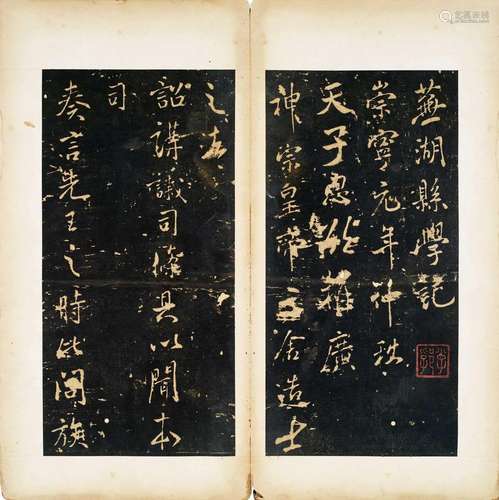 蕪湖縣學記
崇寧元年
天子能推廣
神宗皇帝三舍造士
之法
詔講議司條具以聞本
司
奏言先王之時比閭族